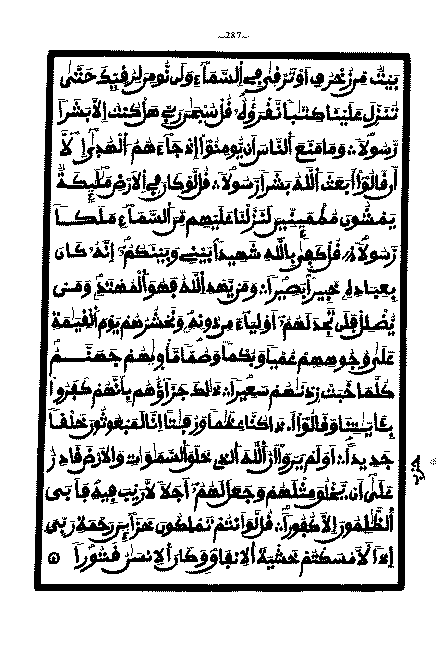 ~287~
بَيْتٌ مِّن زُخْرُفٍ أَوْ تَرْقىٰ فِي السَّمَآءِ وَلَن نُّومِنَ لِرُقِيِّكَ حَتَّىٰ
تُنَزِّلَ عَلَيْنَا كِتَٰباً نَّقْرَؤُهُۥ قُلْ سُبْحَٰنَ رَبِّے هَلْ كُنتُ إِلَّا بَشَراً
رَّسُولاً وَمَا مَنَعَ ٱلنَّاسَ أَن يُّومِنُوٓاْ إِذْ جَآءَهُمُ ٱلْهُدَىٰٓ إِلَّآ
أَن قَالُوٓاْ أَبَعَثَ ٱللَّهُ بَشَراً رَّسُولاً قُل لَّوْ كَانَ فِے ٱلْأَرْضِ مَلَٰٓئِكَةٌ
يَمْشُونَ مُطْمَئِنِّينَ لَنَزَّلْنَا عَلَيْهِم مِّنَ ٱلسَّمَآءِ مَلَكاً
رَّسُولاً قُلْ كَفىٰ بِاللَّهِ شَهِيداً بَيْنِے وَبَيْنَكُمْۥٓ إِنَّهُۥ كَانَ
بِعِبَادِهِۦ خَبِيراً بَصِيراً وَمَنْ يَّهْدِ ٱللَّهُ فَهُوَ ٱلْمُهْتَدِۦ وَمَنْ
يُّضْلِلْ فَلَن تَجِدَ لَهُمْۥٓ أَوْلِيَآءَ مِن دُونِهِۦ وَنَحْشُرُهُمْ يَوْمَ ٱلْقِيَٰمَةِ
عَلَىٰ وُجُوهِهِمْ عُمْياً وَبُكْماً وَصُمّاً مَّأْوِيٰهُمْ جَهَنَّمُ
كُلَّمَا خَبَتْ زِدْنَٰهُمْ سَعِيراً ذَٰلِكَ جَزَآؤُهُم بِأَنَّهُمْ كَفَرُواْ
بِـَٔايَٰتِنَا وَقَالُوٓاْ أَ.ذَا كُنَّا عِظَٰماً وَرُفَٰتاً إِنَّا لَمَبْعُوثُونَ خَلْقاً
جَدِيداً أَوَلَمْ يَرَوْاْ أَنَّ ٱللَّهَ ٱلَّذِے خَلَقَ ٱلسَّمَٰوَٰتِ وَالْأَرْضَ قَادِرٌ
عَلَىٰٓ أَنْ يَّخْلُقَ مِثْلَهُمْ وَجَعَلَ لَهُمْۥٓ أَجَلاً لَّا رَيْبَ فِيهِ فَأَبَى
ٱلظَّٰلِمُونَ إِلَّا كُفُوراً قُل لَّوَ ٱنتُمْ تَمْلِكُونَ خَزَآئِنَ رَحْمَةِ رَبِّيَ
إِذاً لَّأَمْسَكْتُمْ خَشْيَةَ ٱلْإِنفَاقِ وَكَانَ ٱلْإِنسَٰنُ قَتُوراً